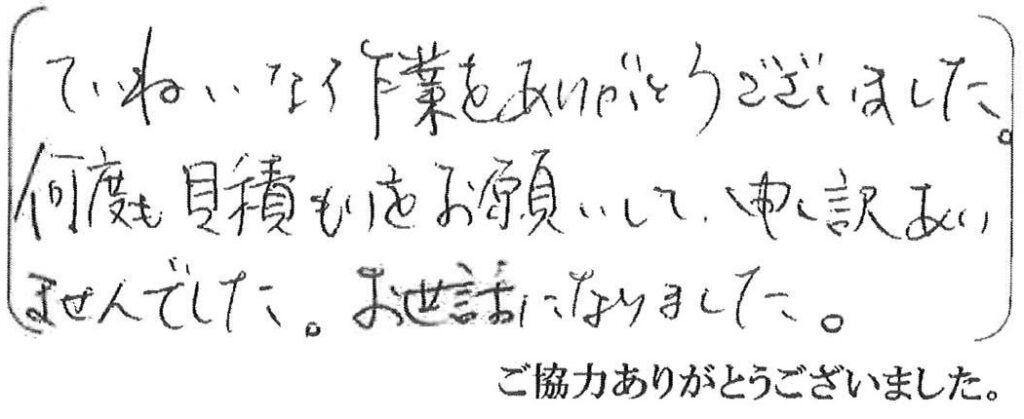 ていねいな作業をありがとうございました。
何度も見積もりをお願いして、申し訳あり
ませんでした。お世話になりました。
ご協力ありがとうございました。